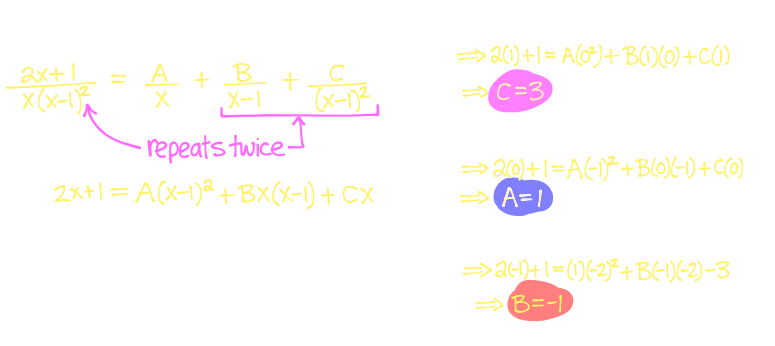 2x+1/x(x-1)² = A/x + B/x-1 + C/(x-1)²
repeats twice
2x+1 = A(x-1)² + Bx(x-1) + Cx
⇒ 2(1)+1 = A(0²) + B(1)(0) + C(1)
⇒ C=3
⇒ 2(0)+1 = A(-1)² + B(0)(-1) + C(0)
⇒ A=1
⇒ 2(-1)+1 = (1)(-2)² + B(-1)(-2) - 3
⇒ B=-1